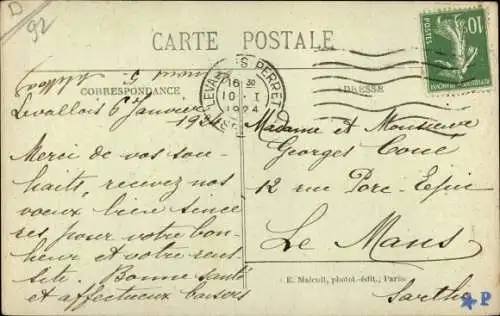 D
92
CARTE POSTALE
LEVALLOIS PERRET
16 30
10 · I
1924
10c
POSTES
CORRESPONDANCE
ADRESSE
Levallois 6 Janvier
1924
Merci de vos sou-
haits, recevez nos
voeux bien sincè
res pour votre bon-
heur et votre reus
site. Bonne santé
et affectueux baisers
Madame et Monsieur
Georges
12 rue Porc-Epic
Le Mans
Sarthe
E. Malcuit, photot.-édit., Paris
P